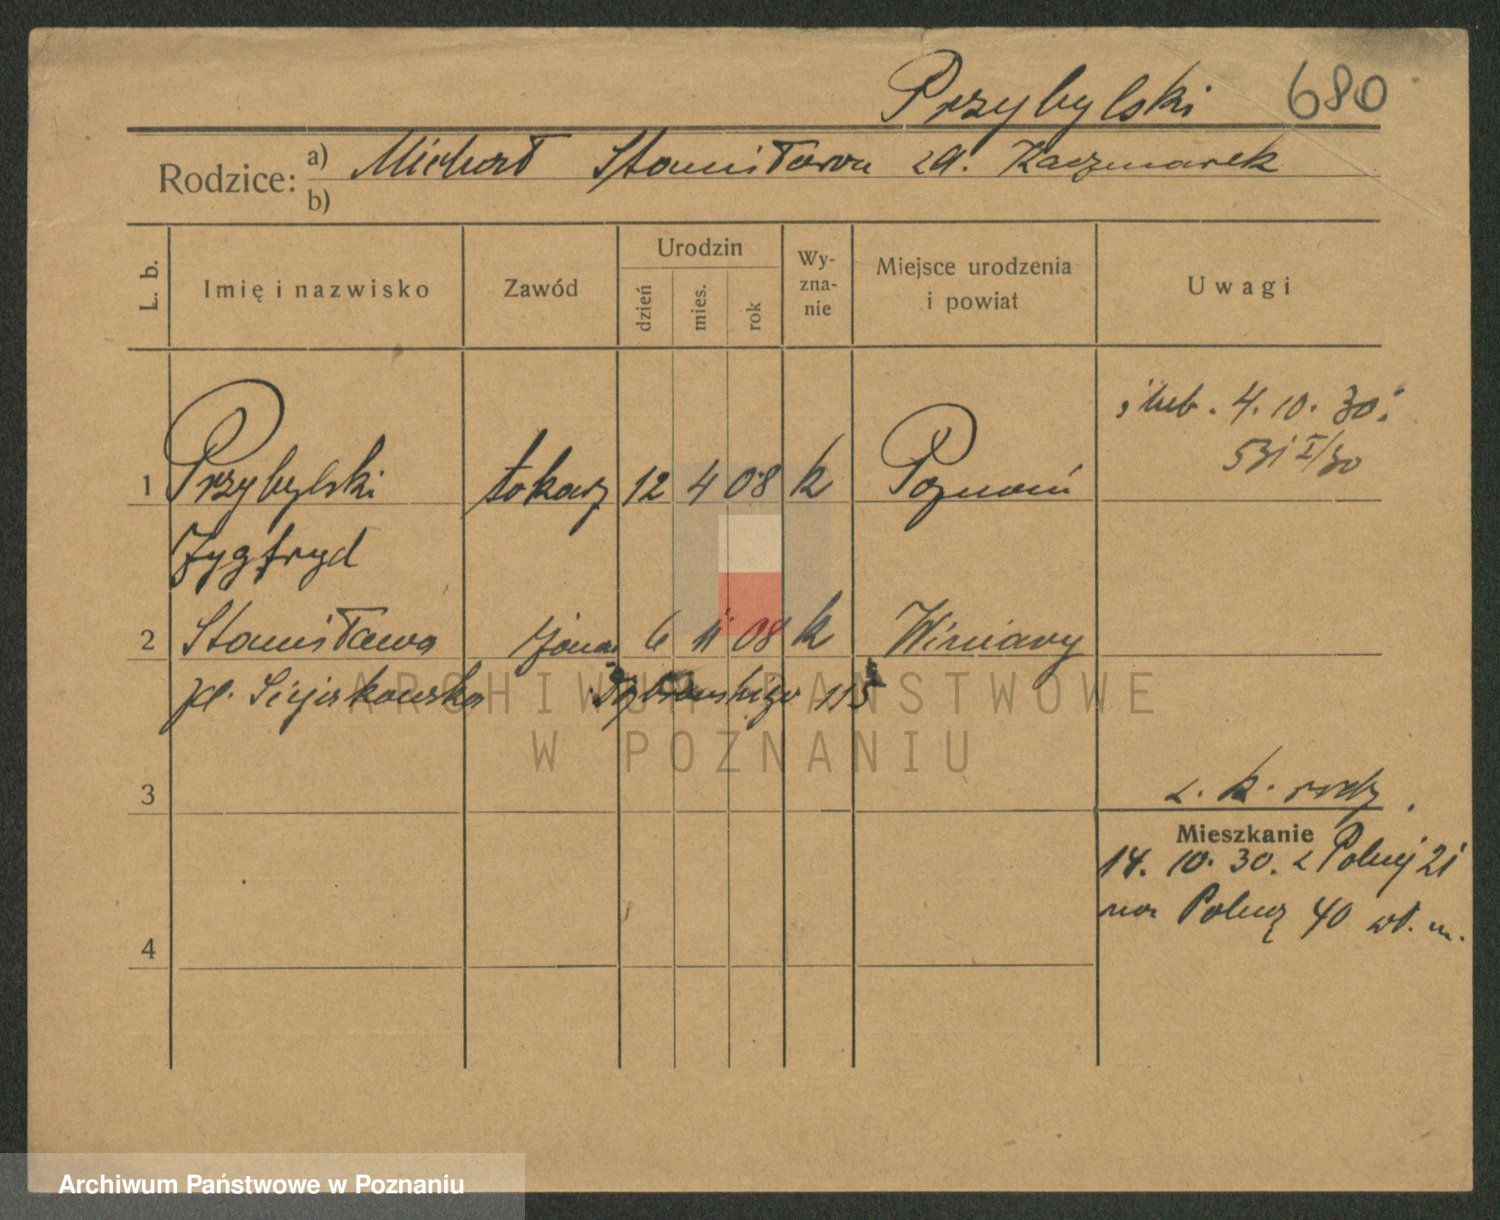 Przybylski 680
Rodzice: a) Michał Stanisława zd. Kaczmarek
b)
L. b. Imię i nazwisko Zawód Urodzin dzień mies. rok Wyznanie Miejsce urodzenia i powiat Uwagi
ślub. 4. 10. 30.
531 I/30
1 Przybylski tokarz 12 4 08 k Poznań
Zygfryd
2 Stanisława żona 6 11 08 k Winiary
Dąbrowskiego 115
ARCHIWUM PAŃSTWOWE
W POZNANIU
3
z. k. rodz.
Mieszkanie
14. 10. 30. z Polnej 21
na Polną 40 wł. m.
4
Archiwum Państwowe w Poznaniu